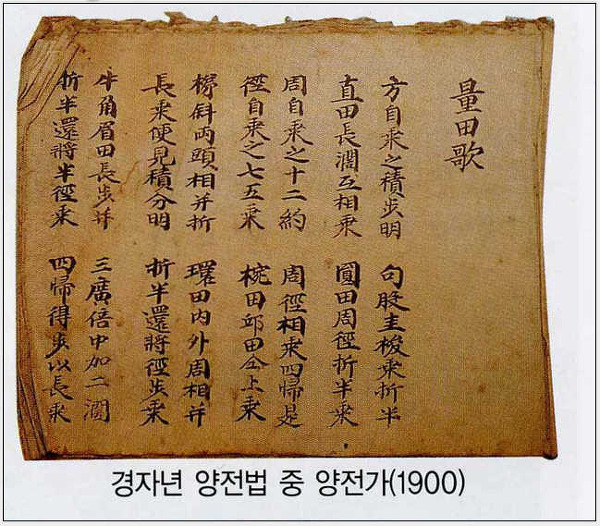 量田歌
方自乘之積步明 句股圭梭乘折半
直田長濶互相乘 圓田周徑折半乘
周自乘之十二約 周徑相乘四歸是
徑自乘之七五乘 椀田邱田仝上乘
梯斜兩頭相并折 環田内外周相并
長乘便見積分明 折半還將徑步乘
牛角眉田長步并 三廣倍中加二濶
折半還將半徑乘 四歸得步以長乘
경자년 양전법 중 양전가(1900)